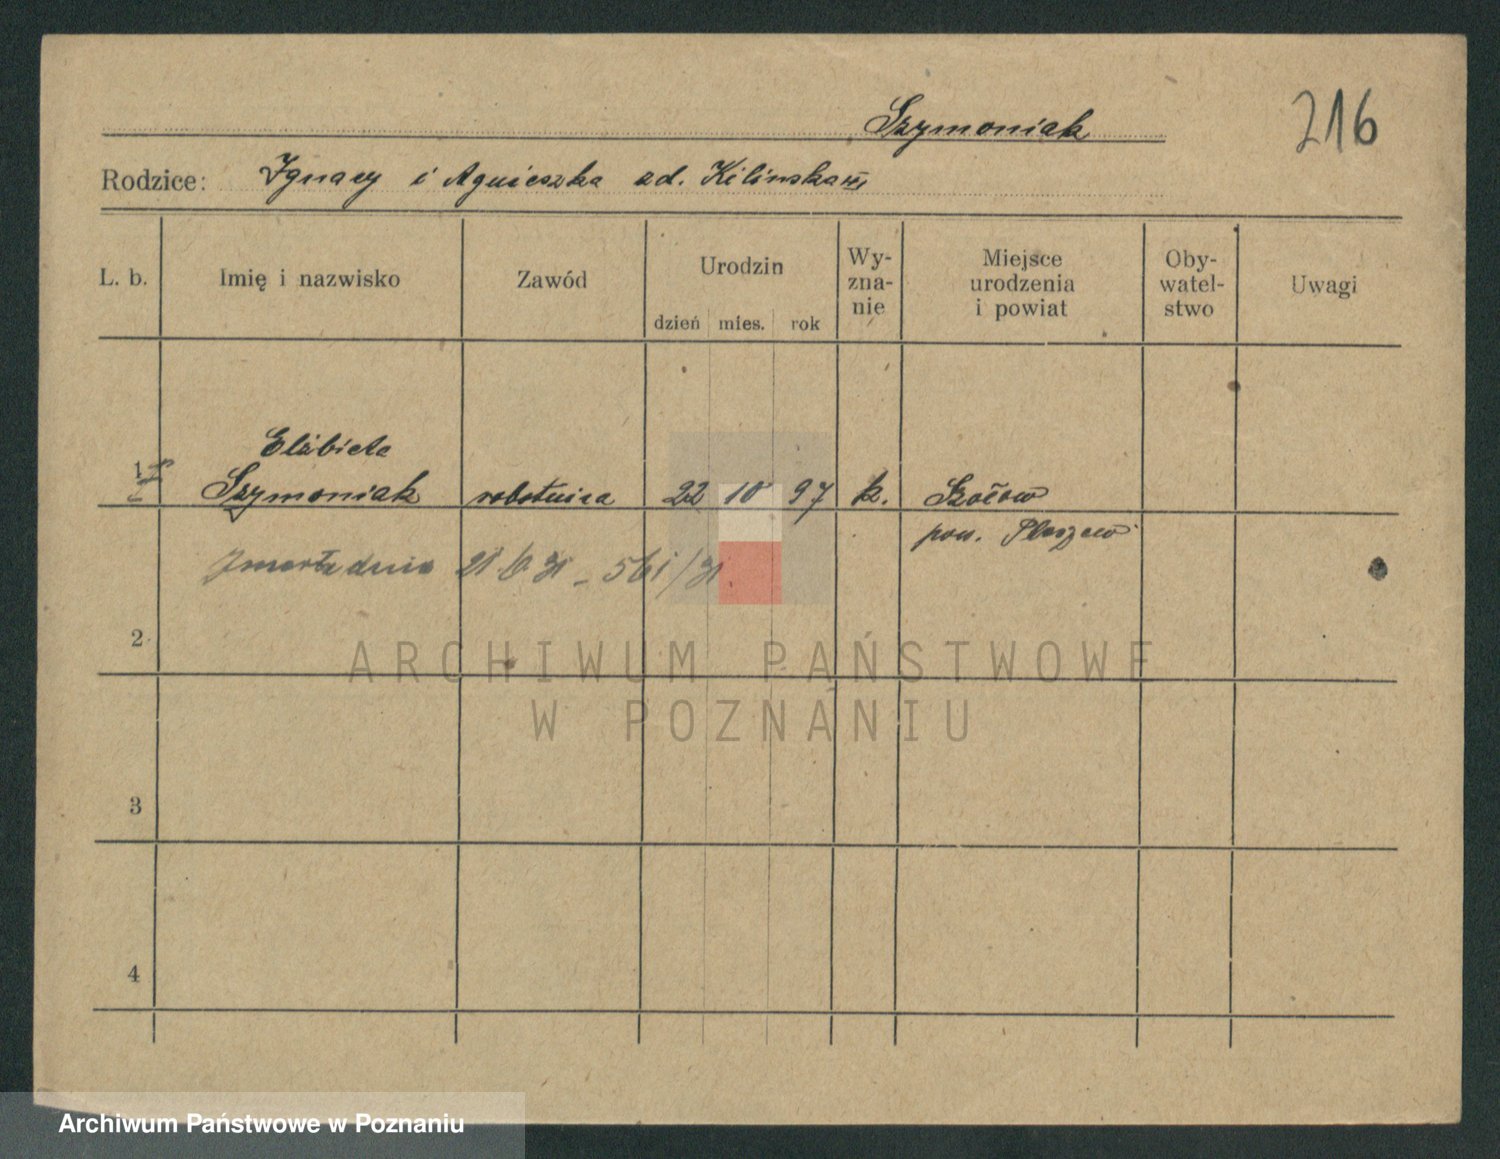 Szymoniak
216
Rodzice: Ignacy i Agnieszka zd. Kilińska
L. b.
Imię i nazwisko
Zawód
Urodzin
dzień mies. rok
Wy-
zna-
nie
Miejsce
urodzenia
i powiat
Oby-
watel-
stwo
Uwagi
Elżbieta
1 Szymoniak robotnica 22 10 97 k. Szołow
pow. Pleszew
Zmarła dnia 21.6.31 – 561/31.
2
3
4
ARCHIWUM PAŃSTWOWE
W POZNANIU
Archiwum Państwowe w Poznaniu